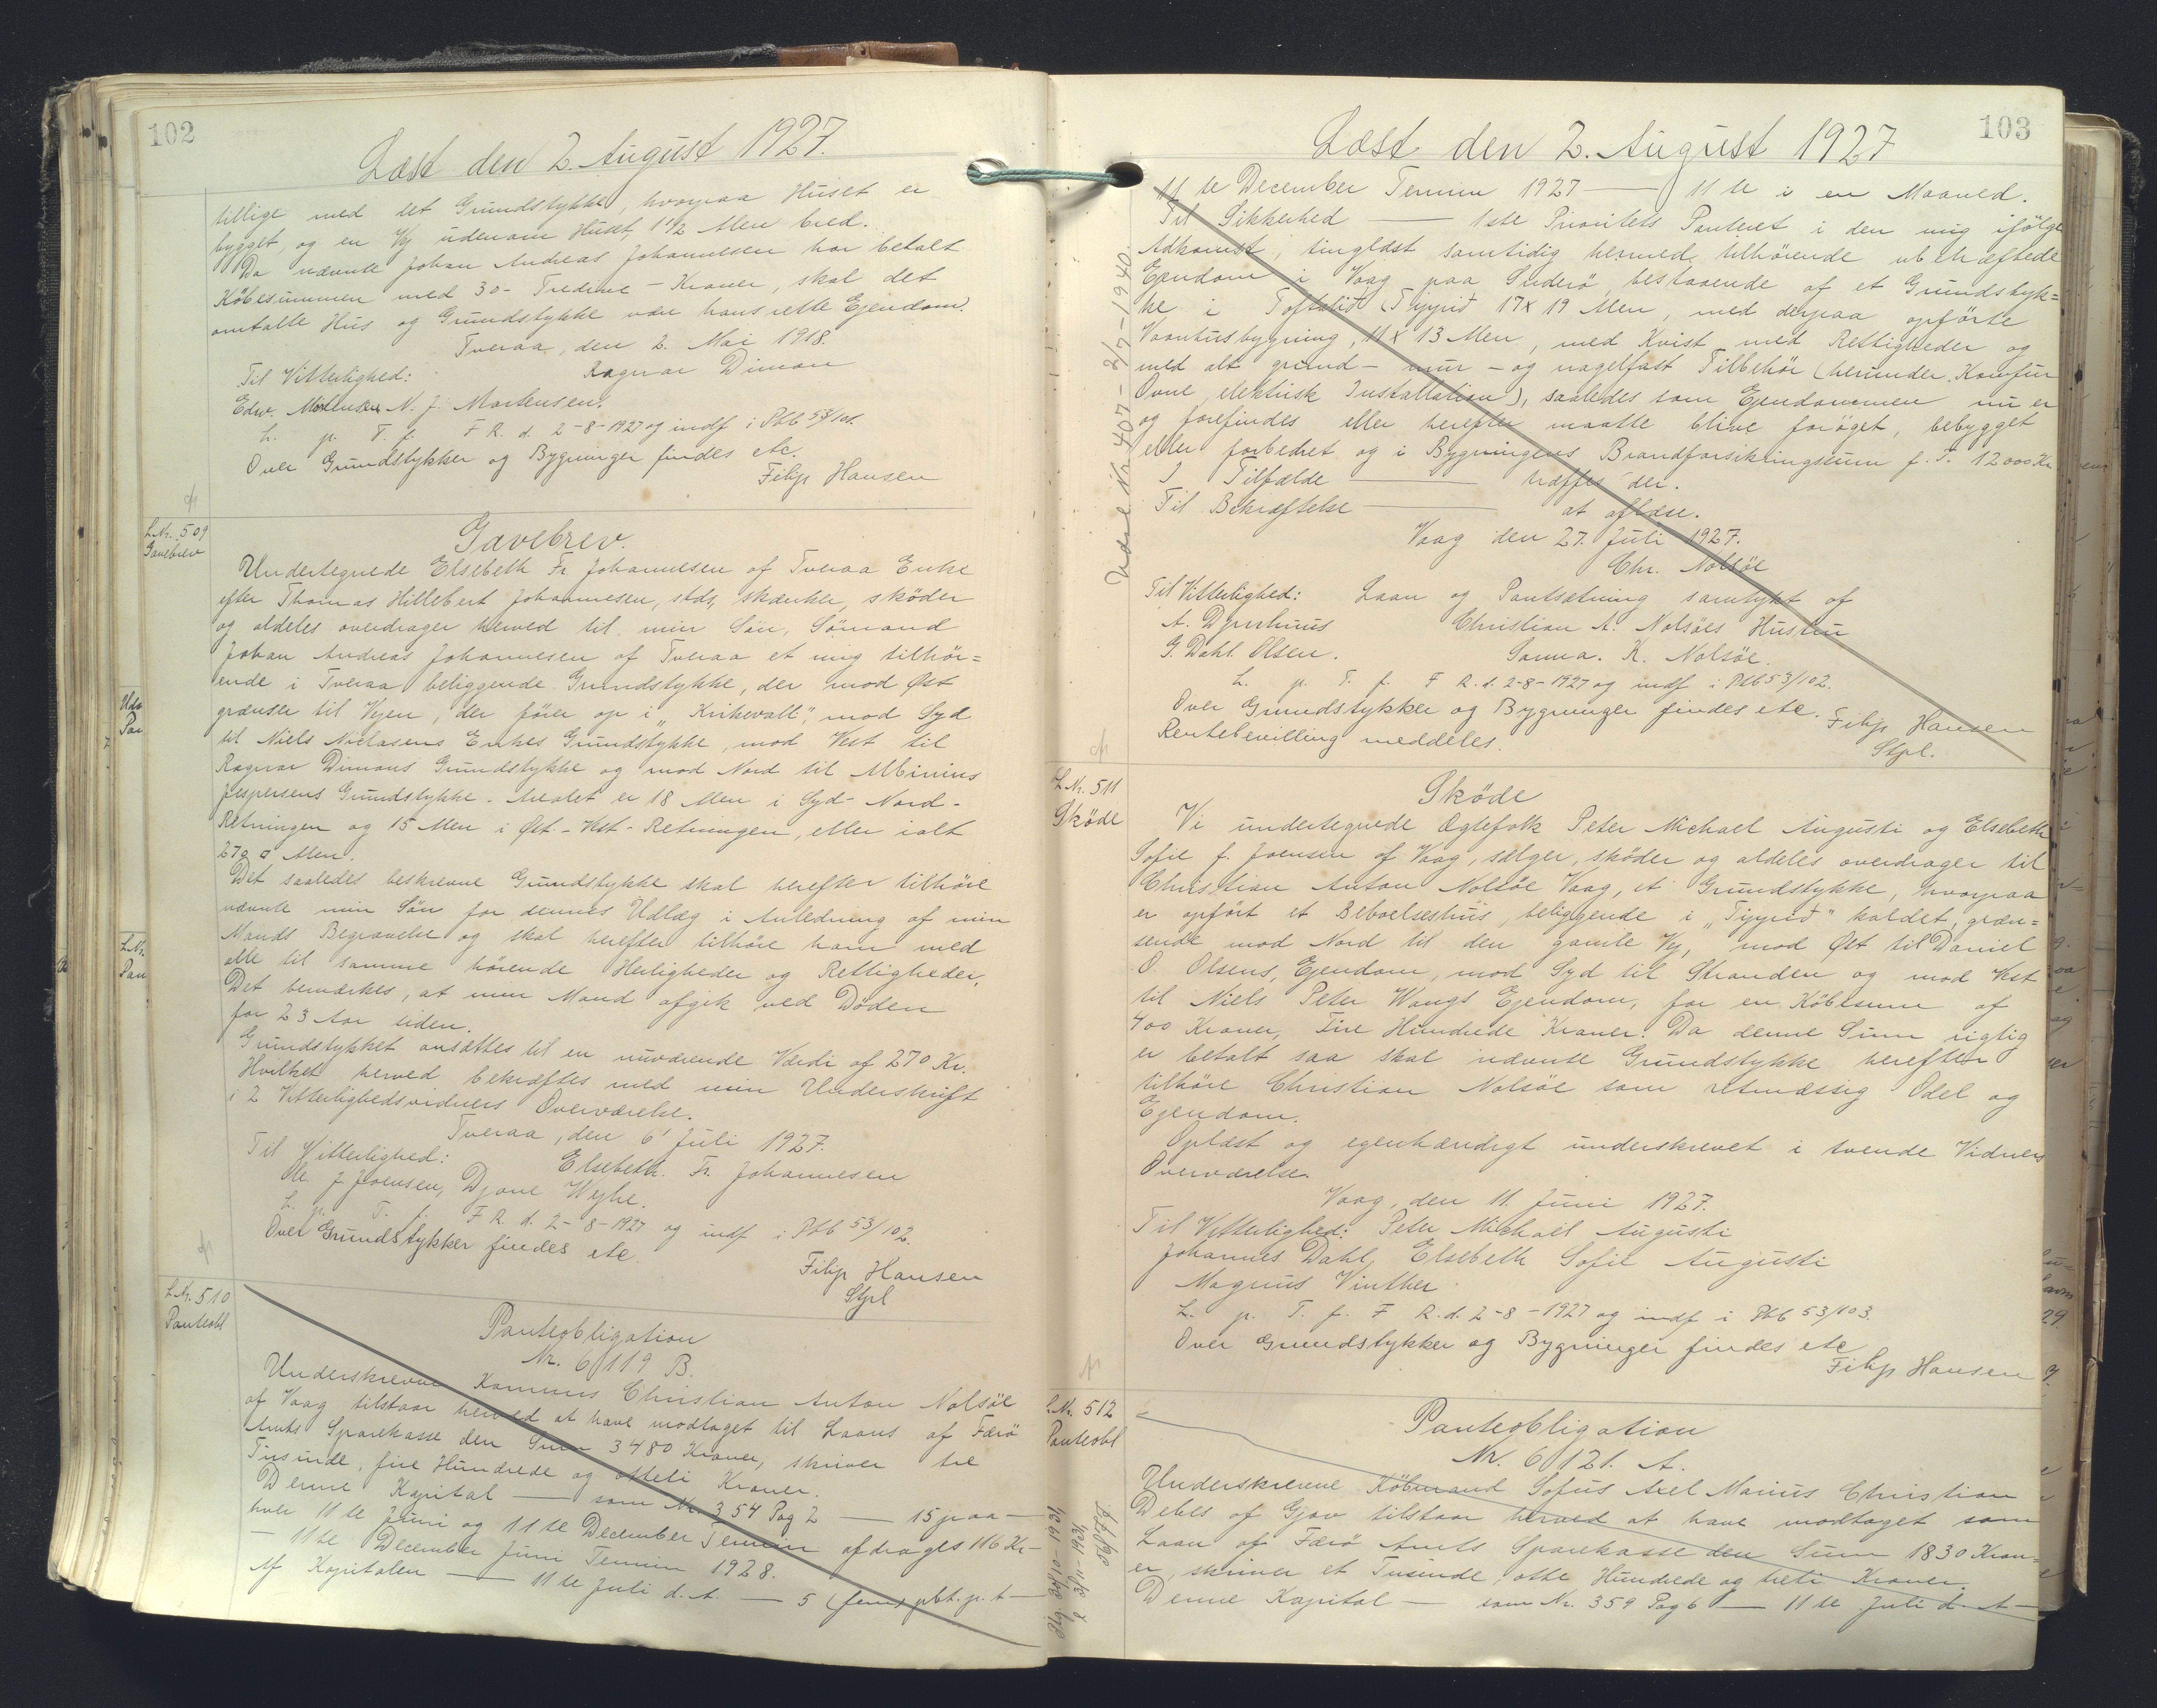 102
Læst den 2. August 1927.
tillige med det Grundstykke, hvorpaa Huset er
bygget, og en Vej udenom Huset, 1 1/2 Alen bred.
Da nævnte Johan Andreas Johannesen har betalt
Købesummen med 30 - Tredive - Kroner, skal det
omtalte Hus og Grundstykke være hans rette Ejendom.
Tveraa, den 2. Mai 1918.
Til Vitterlighed: Ragnar Dimon
Edw. Mortensen N. J. Mortensen.
L. p. T. f. F R. d. 2-8-1927 og indf i Pbb 53/101.
Over Grundstykker og Bygninger findes etc.
Filip Hansen
L.Nr. 509
Gavebrev
Gavebrev.
Undertegnede Elsebeth Fr. Johannesen af Tveraa Enke
efter Thomas Hillebert Johannesen, stds, skænker, skøder
og aldeles overdrager herved til min Søn, Sømand
Johan Andreas Johannesen af Tveraa et mig tilhør=
ende i Tveraa beliggende Grundstykke, der mod Øst
grænser til Vejen, der fører op i "Krikevall", mod Syd
til Niels Nielasens Enkes Grundstykke, mod Vest til
Ragnar Dimons Grundstykke og mod Nord til Albinius
Jespersens Grundstykke. Arealet er 18 Alen i Syd-Nord-
Retningen og 15 Alen i Øst-Vest-Retningen, eller ialt
270 □ Alen.
Det saaledes beskrevne Grundstykke skal herefter tilhøre
nævnte min Søn for dennes Udlæg i Anledning af min
Mands Begravelse og skal herefter tilhøre ham med
alle til samme hørende Herligheder og Rettigheder.
Det bemærkes, at min Mand afgik ved Døden
for 23 Aar siden.
Grundstykket ansættes til en nuværende Værdi af 270 Kr.
Hvilket herved bekræftes med min Underskrift
i 2 Vitterlighedsvidners Overværelse.
Tveraa, den 6' Juli 1927.
Til Vitterlighed: Elsebeth. Fr. Johannesen
J. Joensen, Djone Weyhe.
L. p. T. f. F R. d. 2-8-1927 og indf i Pbb 53/102
Over Grundstykker findes etc.
Filip Hansen
Stpl
L.Nr. 510
Panteobl
Panteobligation
Nr. 6119 B.
Underskrevne Kommis Christian Anton Nolsöe
af Vaag tilstaar herved at have modtaget til Laans af Færø
Amts Sparekasse den Sum 3480 Kroner, skriver tre
Tusinde, fire Hundrede og otteti Kroner.
Denne Kapital — som Nr. 354 Pag 2 — 15 paa —
hver 11te Juni og 11te December Termin afdrages 116 Kr —
— 11te December Juni Termin 1928.
Af Kapitalen — 11te Juli d. A. — 5 (fem) pct. p. t —
103
Læst den 2. August 1927
11te December Termin 1927 — 11te i en Maaned.
Til Sikkerhed — 1ste Prioritets Panteret i den mig ifølge
Adkomst, tinglæst samtidig hermed, tilhørende ubehæftede
Ejendom i Vaag paa Suderø, bestaaende af et Grundstyk=
ke i Toftalið (Typpið 17 x 19 Alen, med derpaa opførte
Vaaningsbygning, 11 x 13 Alen, med Kvist med Rettigheder og
med alt grund- mur- og nagelfast Tilbehør (herunder Komfur
Ovne, elektrisk Installation), saaledes som Ejendommen nu er
og forefindes eller herefter maatte blive forøget, bebygget
eller forbedret og i Bygningens Brandforsikringssum f. T. 12000 Kr
I Tilfælde — træffes der.
Til Bekræftelse — at aflæse.
Vaag den 27. Juli 1927.
Chr. Nolsöe
Til Vitterlighed: Laan og Pantsætning samtykt af
A. Djurhuus Christian A. Nolsöes Hustru
G. Dahl Olsen. Sanna. K. Nolsöe.
L. p. T. f. F R. d. 2-8-1927 og indf i Pbb 53/102.
Over Grundstykker og Bygninger findes etc.
Rentebevilling meddeles. Filip Hansen
Stpl.
Udsl Nr. 407 - 8/7-1940.
L.Nr. 511
Skøde
Skøde
Vi undertegnede Ægtefolk Peter Michael Augusti og Elsebeth
Sofie f. Joensen af Vaag, sælger, skøder og aldeles overdrager til
Christian Anton Nolsöe Vaag, et Grundstykke, hvorpaa
er opført et Beboelseshus, beliggende i "Typpið" kaldet, græn=
sende mod Nord til den gamle Vej, mod Øst til Daniel
O. Olsens, Ejendom, mod Syd til Stranden og mod Vest
til Niels Peter Waags Ejendom, for en Købesum af
400 Kroner, Fire Hundrede Kroner. Da denne Sum rigtig
er betalt saa skal nævnte Grundstykke herefter
tilhøre Christian Nolsöe som retmæssig Odel og
Ejendom.
Oplæst og egenhændigt underskrevet i tvende Vidners
Overværelse.
Vaag, den 11. Juni 1927.
Til Vitterlighed: Peter Michael Augusti
Johannes Dahl, Elsebeth Sofie Augusti
Magnus Vinther
L. p. T. f. F R. d. 2-8-1927 og indf i Pbb 53/103.
Over Grundstykker og Bygninger findes etc
Filip Hansen
L.Nr. 512
Panteobl
Panteobligation
Nr. 6121. A.
Underskrevne Købmand Sofus Axel Marius Christian
Debes af Gjov tilstaar herved at have modtaget som
Laan af Færø Amts Sparekasse den Sum 1830 Kron=
er, skriver et Tusinde, otte Hundrede og treti Kroner.
Denne Kapital — som Nr. 359 Pag 6 — 11te Juli d. A —